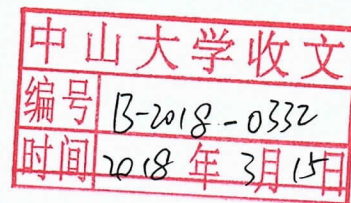 中山大学收文
编号 B-2018-0332
时间 2018年3月15日